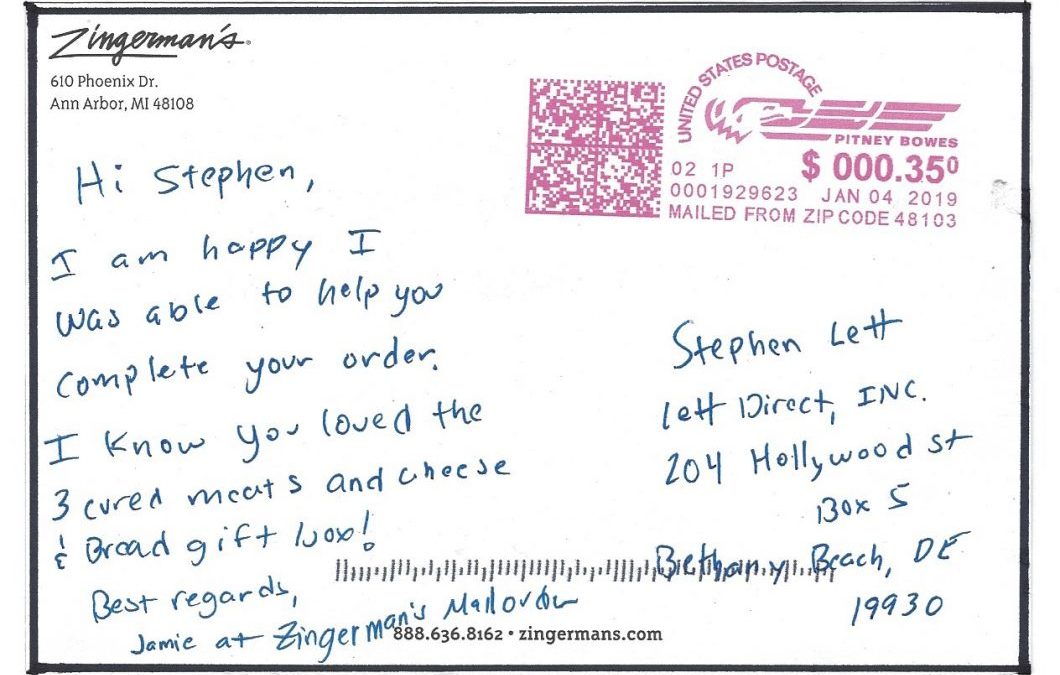 Zingerman's
610 Phoenix Dr.
Ann Arbor, MI 48108
UNITED STATES POSTAGE
PITNEY BOWES
02 1P
$ 000.35⁰
0001929623 JAN 04 2019
MAILED FROM ZIP CODE 48103
Hi Stephen,
I am happy I
was able to help you
complete your order.
I know you loved the
3 cured meats and cheese
& Bread gift box!
Best regards,
Jamie at Zingerman's Mailorder
Stephen Lett
Lett Direct, INC.
204 Hollywood st
Box 5
Bethany Beach, DE
19930
888.636.8162 • zingermans.com